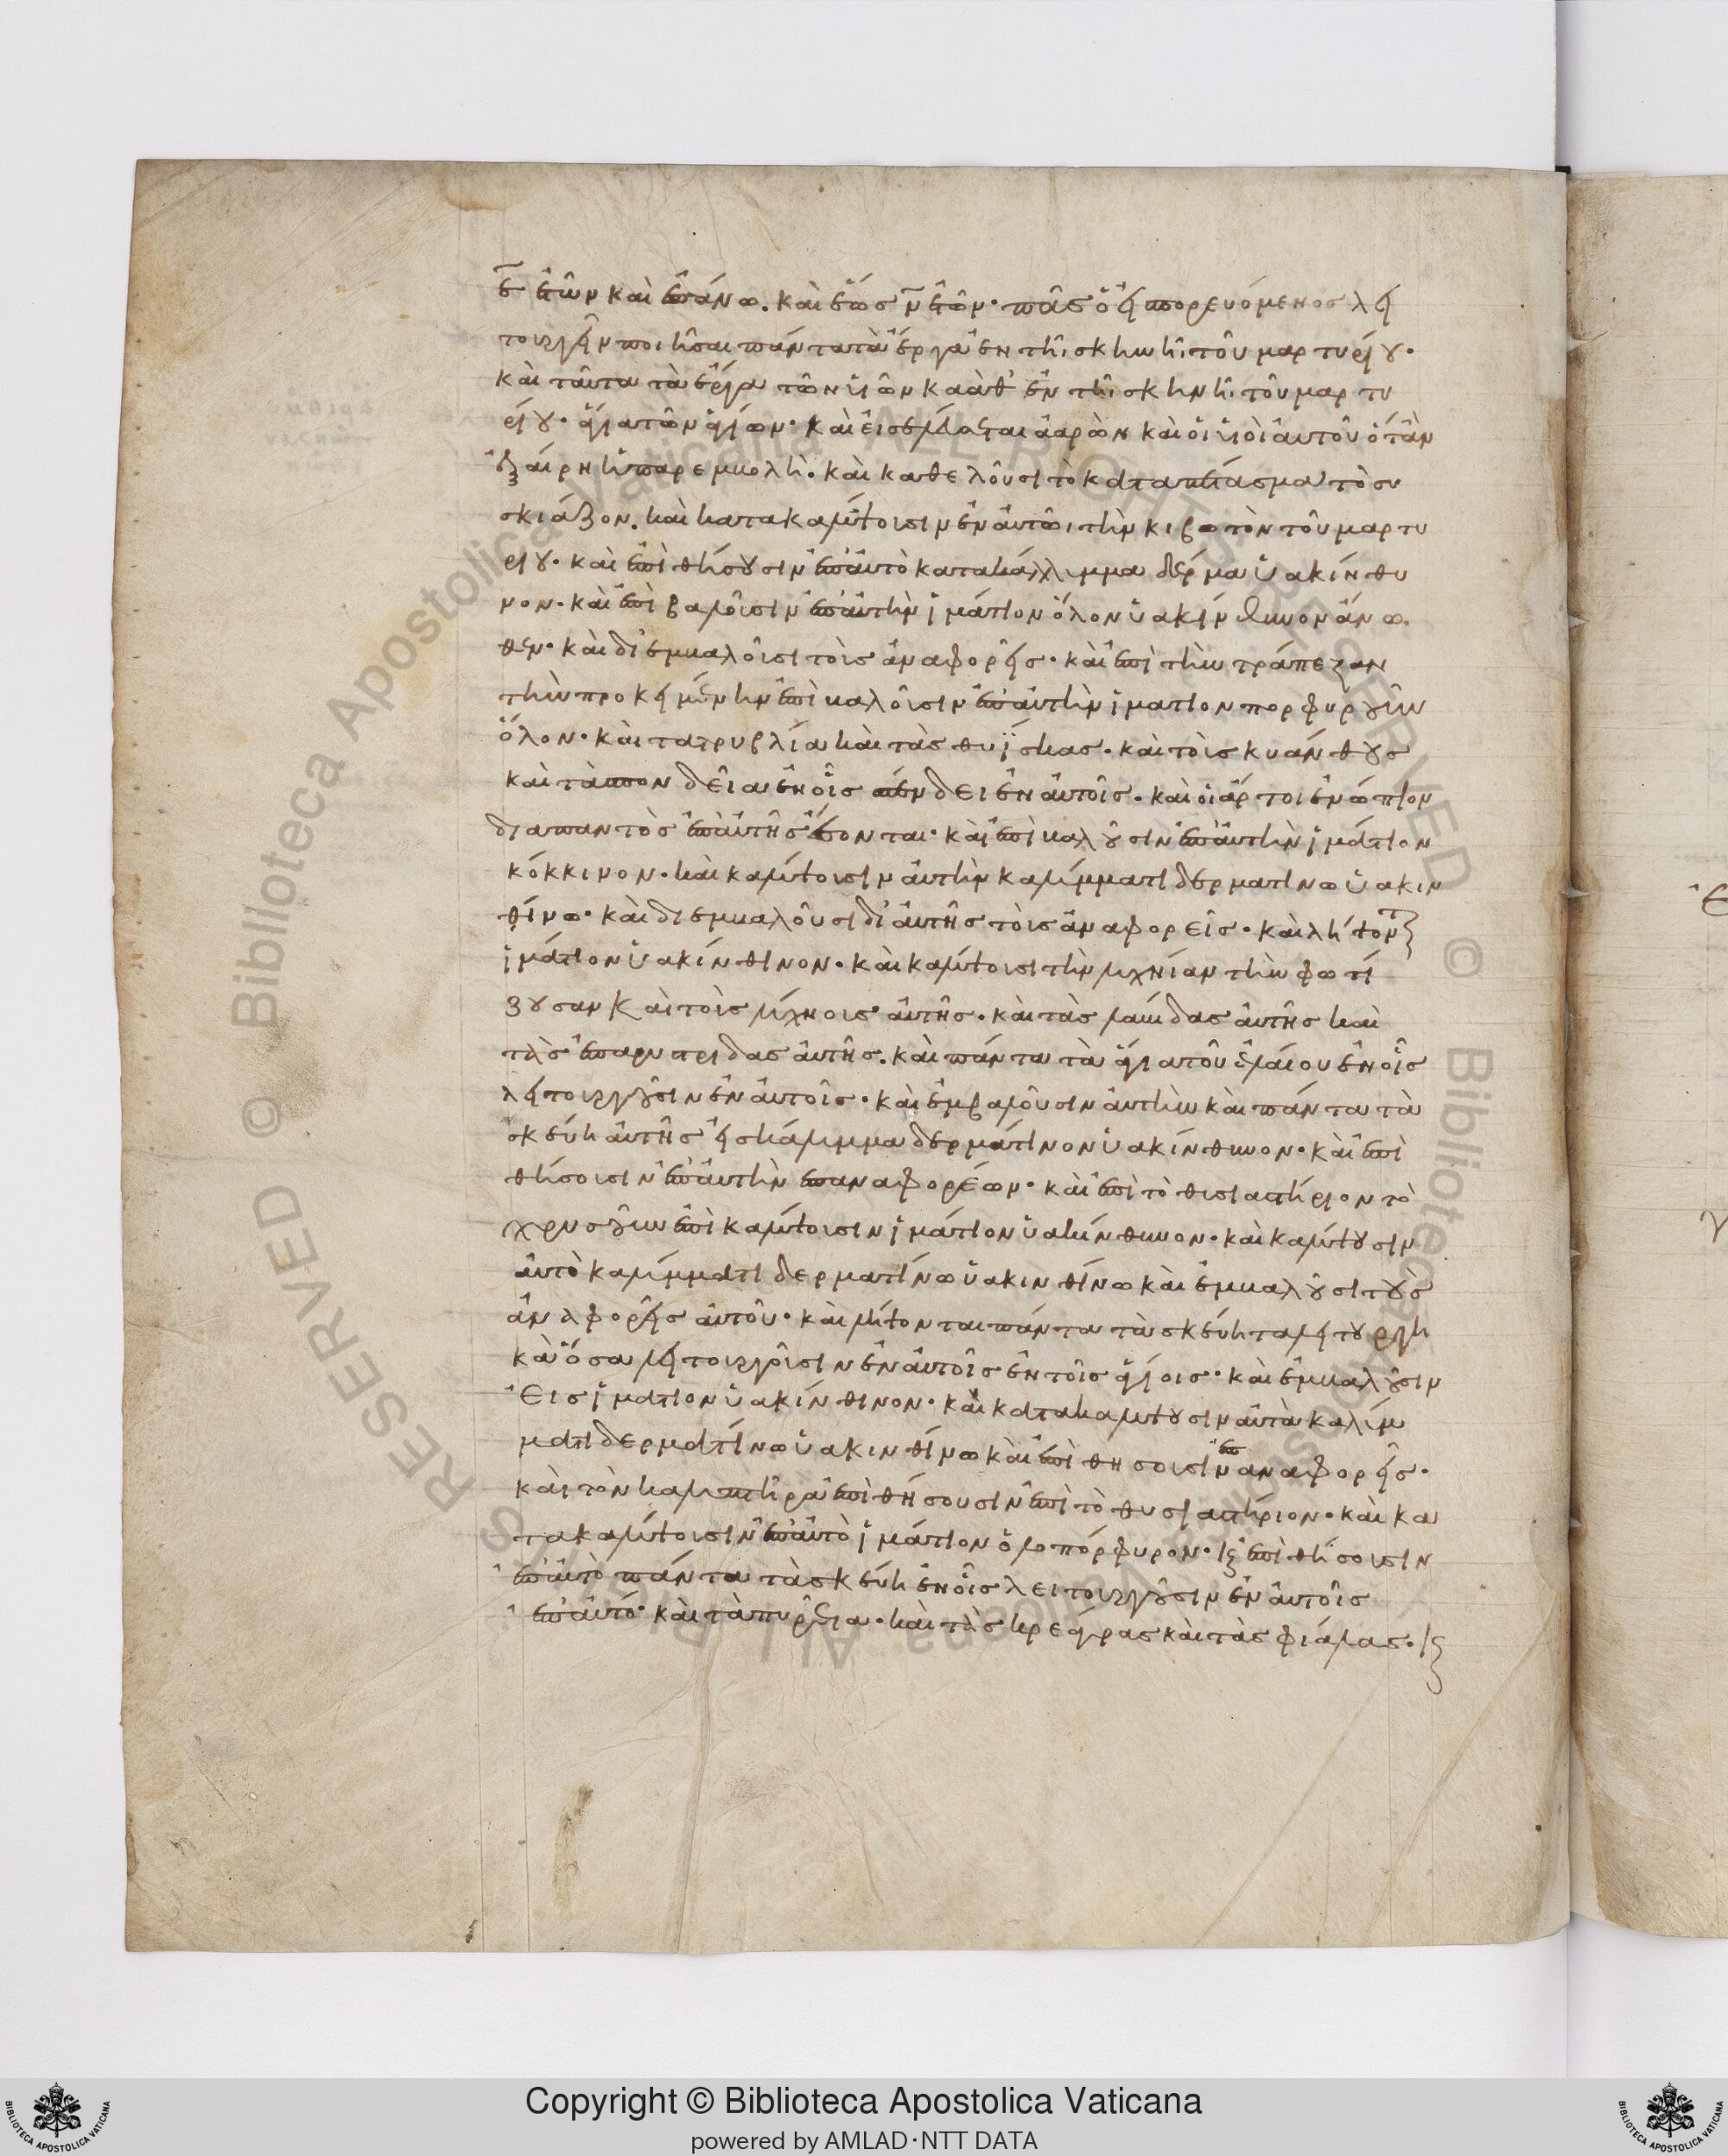 ε ἐτῶν καὶ ἐπάνω. καὶ ἕως ν ἐτῶν· πᾶς ὁ εἰσπορευόμενος λει
τουργεῖν ποιῆσαι πάντα τὰ ἔργα ἐν τῆι σκηνῆι τοῦ μαρτυρίου·
καὶ ταῦτα τὰ ἔργα τῶν υἱῶν καὰθ ἐν τῆι σκηνῆι τοῦ μαρτυ
ρίου· ἅγια τῶν ἁγίων· καὶ εἰσελεύσεται ἀαρὼν καὶ οἱ υἱοὶ αὐτοῦ ὅταν
ἐξαίρηι ἡ παρεμβολὴ· καὶ καθελοῦσι τὸ καταπέτασμα τὸ συ
σκιάζον. καὶ κατακαλύψουσιν ἐν αὐτῶι τὴν κιβωτὸν τοῦ μαρτυ
ρίου· καὶ ἐπιθήσουσιν ἐπ' αὐτὸ κατακάλλυμμα δέρμα ὑακίνθυ
νον· καὶ ἐπιβαλοῦσιν ἐπ' αὐτὴν ἱμάτιον ὅλον ὑακίνθινον ἄνω
θεν· καὶ διεμβαλοῦσι τοὺς ἀναφορεῖς· καὶ ἐπὶ τὴν τράπεζαν
τὴν προκειμένην ἐπιβαλοῦσιν ἐπ' αὐτὴν ἱμάτιον πορφυροῦν
ὅλον· καὶ τὰ τρυβλία καὶ τὰς θυΐσκας· καὶ τοὺς κυάθους
καὶ τὰ σπονδεῖα ἐν οἷς σπένδει ἐν αὐτοῖς. καὶ οἱ ἄρτοι ἐνώπιον
διαπαντὸς ἐπ' αὐτῆς ἔσονται· καὶ ἐπιβαλοῦσιν ἐπ' αὐτὴν ἱμάτιον
κόκκινον· καὶ καλύψουσιν αὐτὴν καλύμματι δερματίνω ὑακιν
θίνω· καὶ διεμβαλοῦσι δι' αὐτῆς τοὺς ἀναφορεῖς· καὶ λήψονται
ἱμάτιον ὑακίνθινον· καὶ καλύψουσι τὴν λυχνίαν τὴν φωτί
ζουσαν καὶ τοὺς λύχνους αὐτῆς· καὶ τὰς λαβίδας αὐτῆς καὶ
τὰς ἐπαρυτρίδας αὐτῆς. καὶ πάντα τὰ ἀγγεῖα τοῦ ἐλαίου ἐν οἷς
λειτουργοῦσιν ἐν αὐτοῖς· καὶ ἐμβαλοῦσιν αὐτὴν καὶ πάντα τὰ
σκεύη αὐτῆς εἰς κάλυμμα δερμάτινον ὑακίνθινον· καὶ ἐπι
θήσουσιν ἐπ' αὐτὴν ἐπ' αναφορέων· καὶ ἐπὶ τὸ θυσιαστήριον τὸ
χρυσοῦν ἐπικαλύψουσιν ἱμάτιον ὑακίνθινον· καὶ καλύψουσιν
αὐτὸ καλύμματι δερματίνω ὑακινθίνω καὶ ἐμβαλοῦσι τοὺς
ἀναφορεῖς αὐτοῦ· καὶ λήψονται πάντα τὰ σκεύη τὰ λειτουργι
κὰ ὅσα λειτουργοῦσιν ἐν αὐτοῖς ἐν τοῖς ἁγίοις· καὶ ἐμβαλοῦσιν
εἰς ἱμάτιον ὑακίνθινον· καὶ κατακαλύψουσιν αὐτὰ καλύμ
ματι δερματίνω ὑακινθίνω καὶ ἐπιθήσουσιν ἐπ' αναφορεῖς·
καὶ τὸν καλυπτῆρα ἐπιθήσουσιν ἐπὶ τὸ θυσιαστήριον· καὶ κα
τακαλύψουσιν ἐπ' αὐτὸ ἱμάτιον ὁλοπόρφυρον· κ ἐπιθήσουσιν
ἐπ' αὐτὸ πάντα τὰ σκεύη ἐν οἷς λειτουργοῦσιν ἐν αὐτοῖς
ἐπ' αὐτό· καὶ τὰ πυρεῖα· καὶ τὰς κρεάγρας καὶ τὰς φιάλας· κ
Copyright © Biblioteca Apostolica Vaticana
powered by AMLAD·NTT DATA